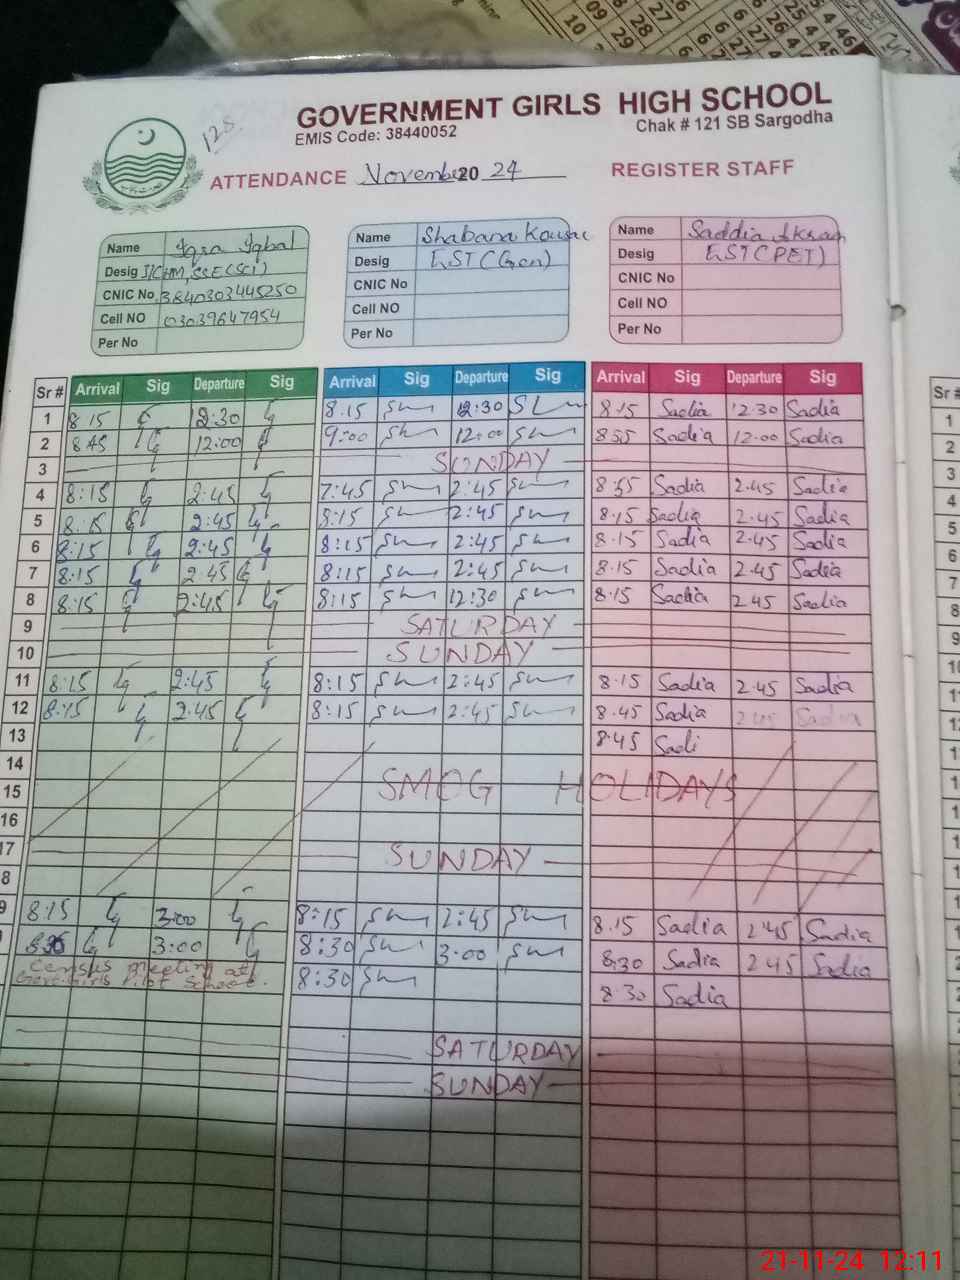 GOVERNMENT GIRLS HIGH SCHOOL
EMIS Code: 38440052 Chak # 121 SB Sargodha
128
ATTENDANCE November 20 24 REGISTER STAFF
Name Iqra Iqbal Name Shabana Kousar Name Saddia Akram
Desig I/CHM, SSE(SCI) Desig EST (Gen) Desig EST (PET)
CNIC No 3840303445250 CNIC No CNIC No
Cell NO 03039647954 Cell NO Cell NO
Per No Per No Per No
Sr # Arrival Sig Departure Sig Arrival Sig Departure Sig Arrival Sig Departure Sig Sr #
1 8:15 12:30 8:15 12:30 8:15 Sadia 12.30 Sadia 1
2 8:45 12:00 9:00 12:00 8:55 Sadia 12.00 Sadia 2
3 SUNDAY 3
4 8:15 2:45 7:45 2:45 8:55 Sadia 2.45 Sadia 4
5 8:15 2:45 8:15 2:45 8.15 Sadia 2.45 Sadia 5
6 8:15 2:45 8:15 2:45 8.15 Sadia 2.45 Sadia 6
7 8:15 2:45 8:15 2:45 8.15 Sadia 2.45 Sadia 7
8 8:15 2:45 8:15 12:30 8.15 Sadia 2.45 Sadia 8
9 SATURDAY 9
10 SUNDAY 10
11 8:15 2:45 8:15 2:45 8.15 Sadia 2.45 Sadia
12 8:15 2:45 8:15 2:45 8.45 Sadia 2.45 Sadia
13 8.45 Sadi
14
15 SMOG HOLIDAYS
16
17 SUNDAY
8
9 8:15 3:00 8:15 2:45 8.15 Sadia 2.45 Sadia
3:00 8:30 3:00 8:30 Sadia 2.45 Sadia
Census meeting at 8:30 8.30 Sadia
Govt. Girls Pilot School.
SATURDAY
SUNDAY
21-11-24 12:11